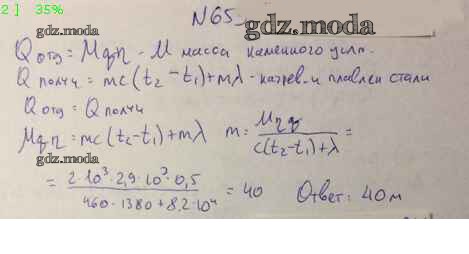 2] 35%
N65
gdz.moda
Qотд = Mqη - M масса каменного угля.
gdz.moda
Qполуч = mc(t₂-t₁)+mλ - нагрев. и плавлен стали
Qотд = Qполуч
Mqη = mc(t₂-t₁)+mλ m = Mηq / c(t₂-t₁)+λ =
gdz.moda
= 2·10³·2,9·10⁷·0,5 / 460·1380+8,2·10⁴ = 40 Ответ: 40м
gdz.moda